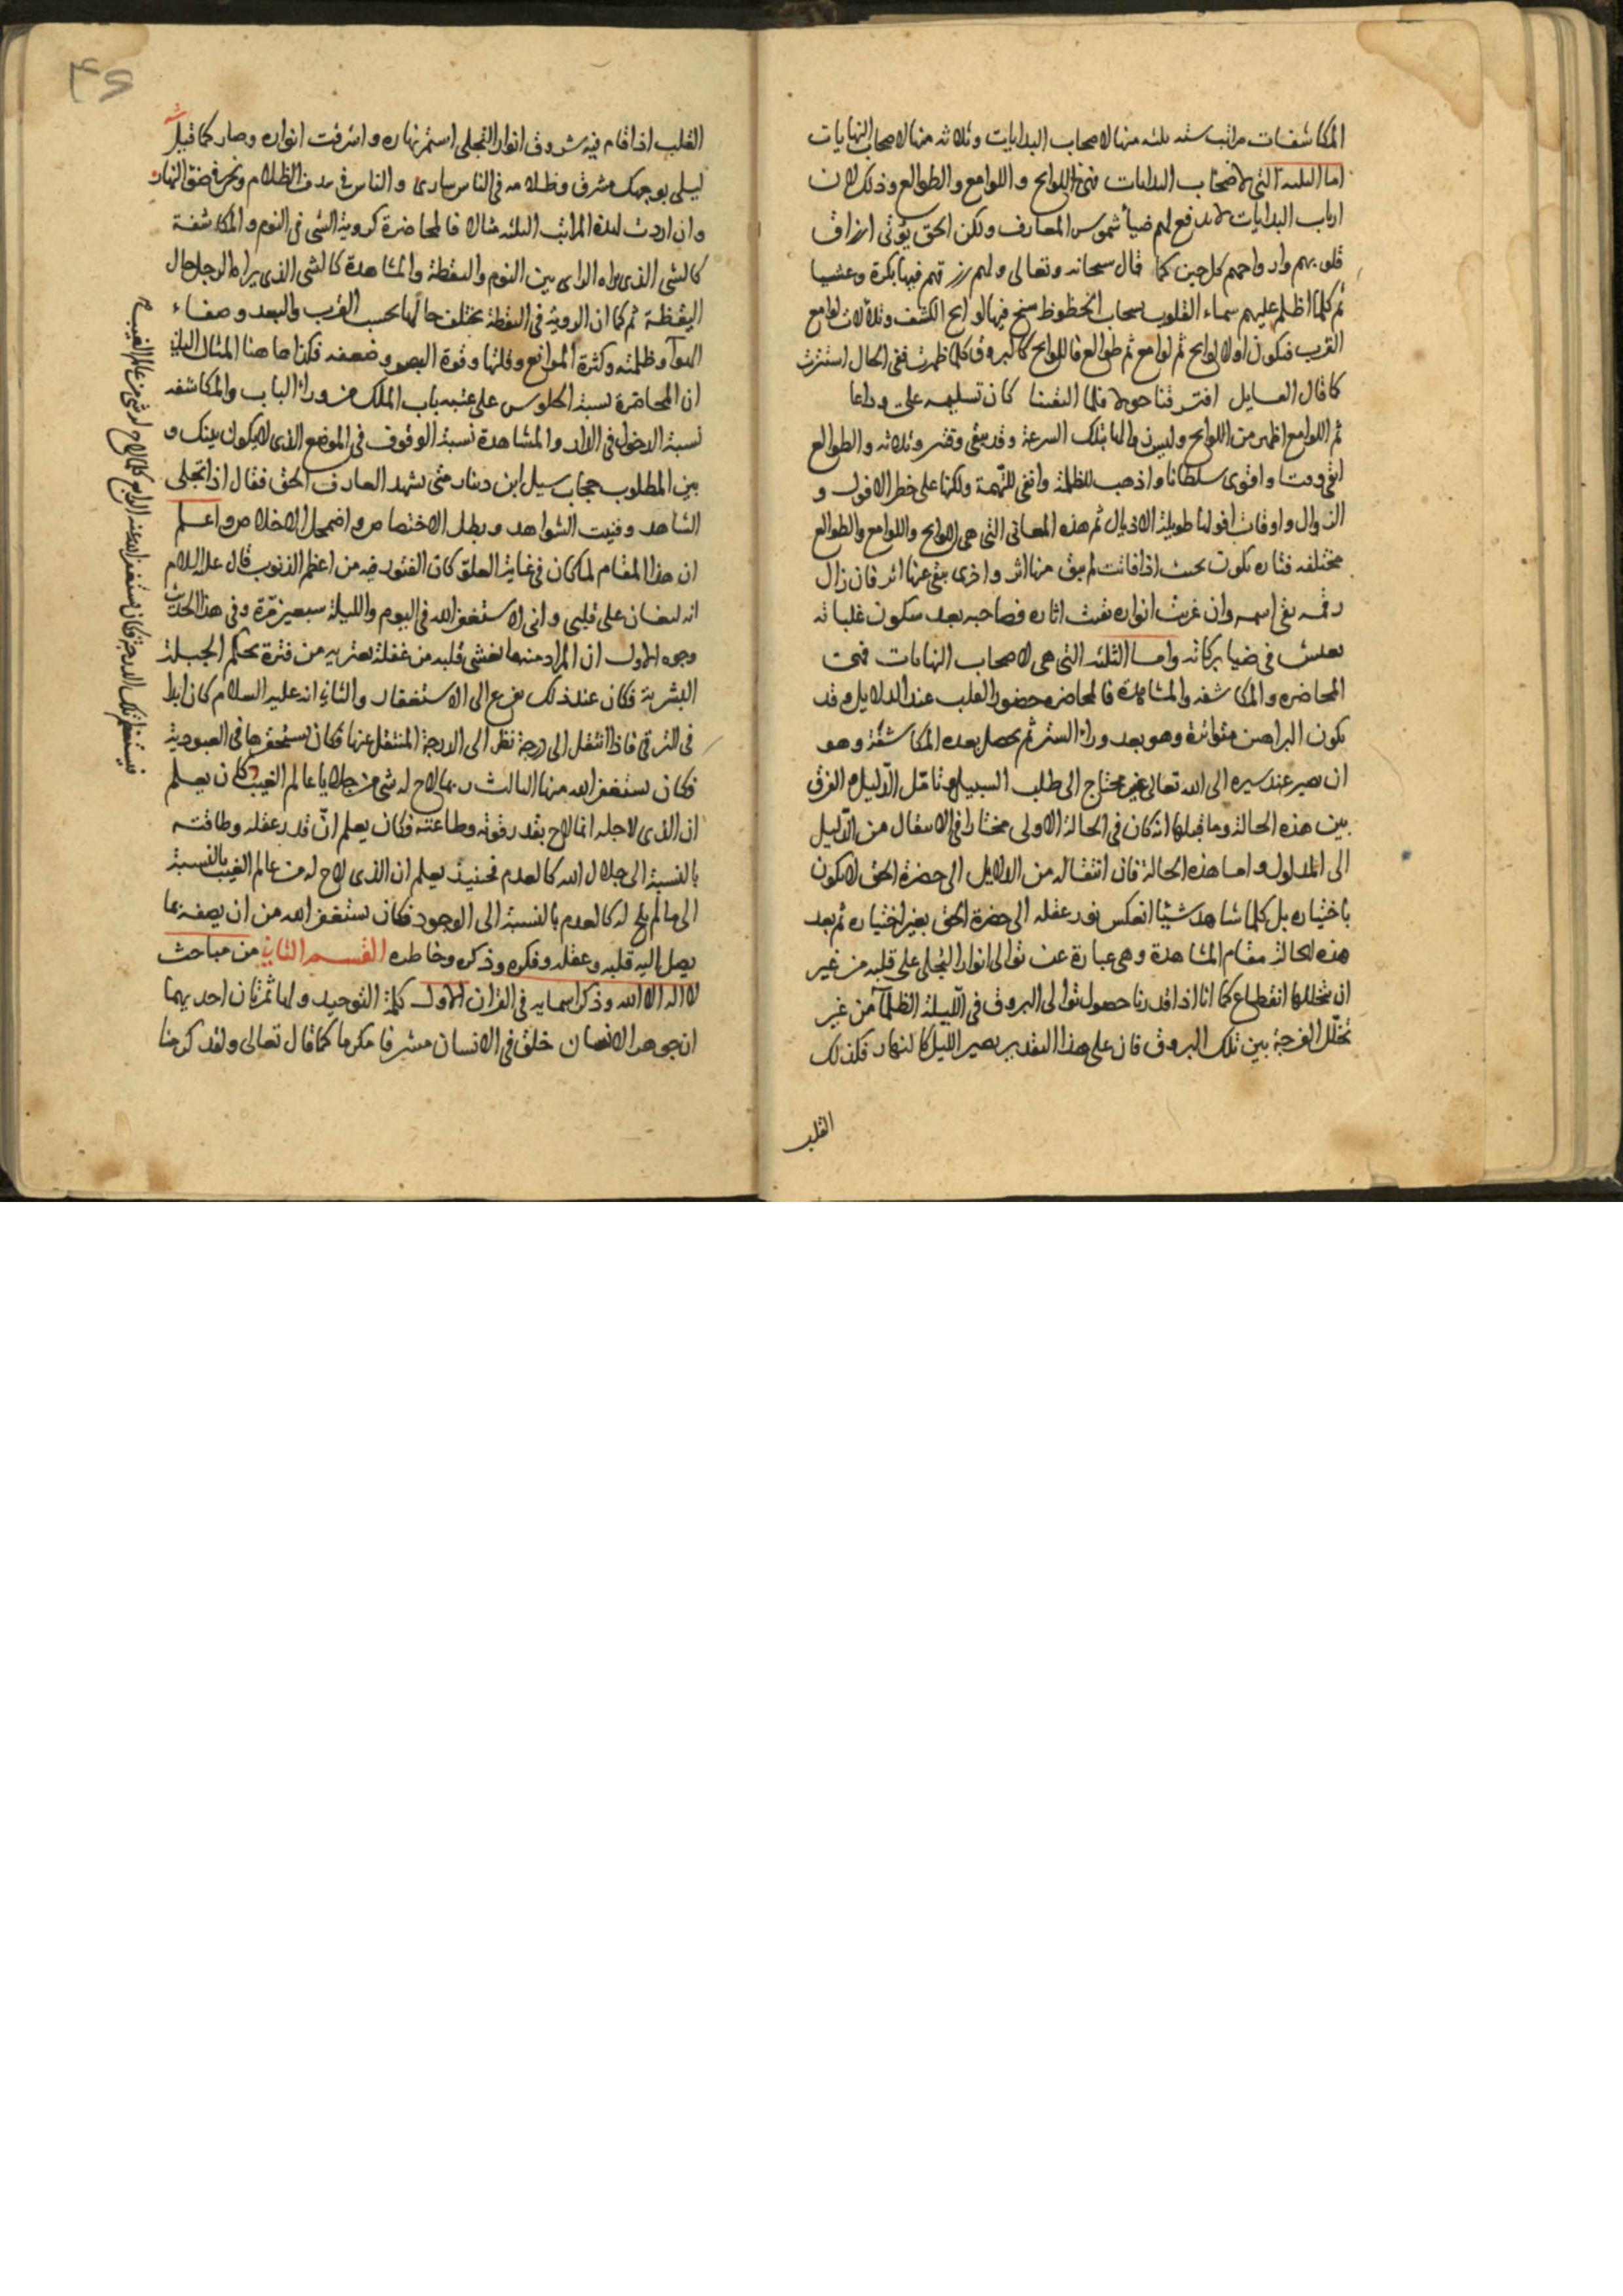 المكاشفات مراتب سته ثلثه منها لاصحاب البدايات وثلاثه منها لاصحاب النهايات
اما الثلثه التى لاصحاب البدايات فهى اللوايح واللوامع والطوالع وذلك لان
ارباب البدايات لا يدفع لهم ضياء شموس المعارف ولكن الحق يؤتى ارزاق
قلوبهم وارواحهم كل حين كما قال سبحانه وتعالى ولهم رزقهم فيها بكرة وعشيا
ثم كلما اظلم عليهم سماء القلوب بسحاب الحظوظ سنح فيها لوايح الكشف وتلألأت لوامع
القرب فيكون اولا لوايح ثم لوامع ثم طوالع فاللوايح كالبروق كلما ظهرت ففى الحال استترت
كما قال القايل افترقنا حولا فلما التقينا كان تسليمه على وداعا
ثم اللوامع اظهر من اللوايح وليس زوالها بتلك السرعة وقد يبقى وقتين وثلاثه والطوالع
ابقى وقتا واقوى سلطانا واذهب للظلمة وانفى للتهمة ولكنها على خطر الافول و
الزوال واوقات افولها طويلة الاذيال ثم هذه المعانى التى هى اللوايح واللوامع والطوالع
مختلفه فتاره يكون بحيث اذا فاتت لم يبق منها اثر واخرى يبقى عنها اثر فان زال
رقمه بقى اسمه وان غربت انواره بقيت اثاره فصاحبه بعد سكون غلباته
يعيش فى ضيا بركاته واما الثلثه التى هى لاصحاب النهايات فهى
المحاضره والمكاشفه والمشاهدة فالمحاضره حضور القلب عند الدلايل وقد
يكون البراهين متواترة وهو بعد وراء الستر ثم يحصل بعده المكاشفة وهو
ان يصير عند سيره الى الله تعالى غير محتاج الى طلب السبيل وتامّل الدّليل والفرق
بين هذه الحالة وما قبلها انه كان فى الحالة الاولى مختارا فى الانتقال من الدّليل
الى المدلول واما هذه الحالة فان انتقاله من الدلايل الى حضرة الحق لا يكون
باختياره بل كلما شاهد شيئا انعكس نور عقله الى حضرة الحق بغير اختياره ثم بعد
هذه الحالة مقام المشاهدة وهى عبارة عن توالى انوار التجلى على قلبه من غير
ان يتخللها انقطاع كما انا اذا قدرنا حصول توالى البروق فى اللّيلة الظلمآ من غير
تخلّل الفرجة بين تلك البروق فان على هذا التقدير يصير الليل كالنهار فكذلك
القلب
القلب اذا قام فيه شروق انوار التجلى استمر نهاره واشرقت انواره وصار كما قيل
ليلى بوجهك مشرق وظلامه فى الناس سارى والناس فى سدف الظلام ونحن فى ضوء النهار
وان اردت لهذه المراتب الثلثه مثالا فالمحاضرة كروية الشى فى النوم والمكاشفة
كالشى الذى يراه الراى بين النوم واليقظة والمشاهدة كالشى الذى يراه الرجل حال
اليقظة ثم كما ان الروية فى اليقظة يختلف حالها بحسب القرب والبعد وصفاء
الهوآ وظلمته وكثرة الموانع وقلتها وقوة البصر وضعفه فكذا هاهنا المثال الثانى
ان المحاضرة نسبة الجلوس على عتبه باب الملك من وراء الباب والمكاشفه
نسبة الدخول فى الدار والمشاهدة نسبة الوقوف فى الموضع الذى لا يكون بينك و
بين المطلوب حجاب سيل ابن دينار متى يشهد العارف الحق فقال اذا تجلى
الشاهد وفنيت الشواهد وبطل الاختصاص واضمحل الاخلاص واعلم
ان هذا المقام لما كان فى غاية العلوّ كان الفتور فيه من اعظم الذنوب قال عليه السلام
انه ليغان على قلبى وانى لاستغفر الله فى اليوم والليلة سبعين مّرة وفى هذا الحديث
وجوه الاول ان المراد منه ما يغشى قلبه من غفلة يعتريه من فترة بحكم الجبلة
البشرية فكان عند ذلك يفزع الى الاستغفار والثانى انه عليه السلام كان ابدا
فى الترقى فاذا انتقل الى درجة نظر الى الدرجة المنتقل عنها فكان يستحقرها فى العبودية
فكان يستغفر الله منها الثالث ربما لاح له شى من جلايا عالم الغيب فكان يعلم
ان الذى لاجله انما لاح بقدر قوته وطاعته فكان يعلم انّ قدر عقله وطاقته
بالنسبة الى جلال الله كالعدم فحينئذ يعلم ان الذى لاح له من عالم الغيب بالنسبة
الى ما لم يلح له كالعدم بالنسبة الى الوجود فكان يستغفر الله من ان يصفه بما
يصل اليه قلبه وعقله وفكره وذكره وخاطره القسم الثانى من مباحث
لا اله الا الله وذكر اسمايه فى القران الاول كلمة التوحيد ولها ثمرتان احديهما
ان جوهر الانسان خلق فى الانسان مشرفا مكرما كما قال تعالى ولقد كرمنا
فيستعظم تلك الدرجة فكان يستغفر الله عنه الرابع كلما لاح له شى من عالم الغيب